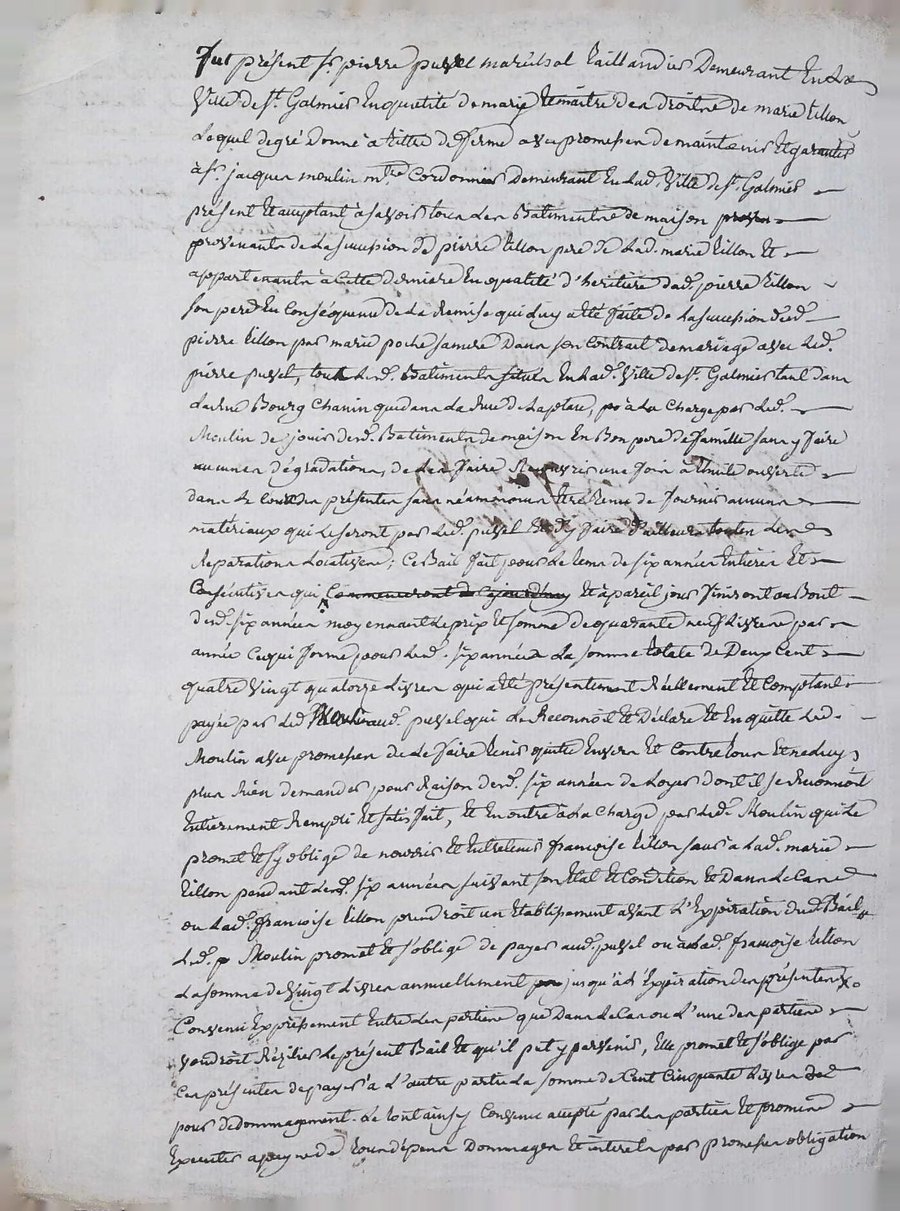 fut présent sr. pierre puvel maréchal taillandier Demeurant En la
Ville de st. Galmier En qualité de mary Et maitre des droits de marie tillon
Lequel de gré Donne à titre de ferme avec promesse de maintenir Et garantir
à sr. jacques moulin mtre. Cordonnier Demeurant En lad. Ville de st. Galmier
présent Et acceptant à savoir tous les Batiments de maison
provenants de La succession de pierre tillon pere de Lad. marie tillon Et
appartenants à Cette derniere En qualité d'heritiere dud. pierre tillon
son pere En Conséquence de La Remise qui luy a été faite de La succession dud.
pierre tillon par marie poche sa mere Dans son Contrat de mariage avec led.
pierre puvel, tous Lesd. Batiments situés En Lad. Ville de st. Galmier tant dans
La rue Bourg Chanin que dans La Rue de La , à La Charge par Led.
Moulin de jouir desd. Batiments de maison En Bon pere de famille sans y faire
aucunes dégradations, de Les faire Recouvrir une fois à thuile ouverte
dans Le Cours des présentes sans néammoins Etre tenu de fournir aucuns
matériaux qui Le seront par Led. puvel Et d'y faire d'ailleurs toutes Les
Reparations Locatives; Ce Bail fait pour Le tems de six années Entieres Et
Consécutives qui Commenceront de Cejourdhuy Et à pareil jour finiront au Bout
desd. six années moyennant Le prix Et somme de quarante neuf Livres par
année Ce qui forme pour Lesd. six années La somme totale de Deux Cent
quatre Vingt quatorze Livres qui a été présentement Réellement Et Comptant
payée par Led. Moulin aud. puvel qui Le Reconnoit Et Déclare Et En quitte Led.
Moulin avec promesse de Le faire tenir quitte Envers Et Contre tous Et ne luy
plus Rien demander pour Raison desd. six années de Loyer dont il se Reconnoit
Entierement Rempli Et satisfait, Et En outre à La Charge par Led. Moulin qui Le
promet Et s'y oblige de nourrir Et Entretenir françoise tillon sœur à Lad. marie
tillon pendant Lesd. six années suivant son Etat Et Condition Et Dans Le Cas
ou Lad. françoise tillon prendroit un Etablissement avant L'Expiration dud. Bail
Led. Moulin promet Et s'oblige de payer aud. puvel ou à Lad. françoise tillon
La somme de Vingt Livres annuellement jusqu'à L'Expiration des présentes
Convenu Expressement Entre Les parties que Dans Le Cas ou L'une des parties
voudroit Résilier Le présent Bail Et qu'il put y parvenir, Elle promet Et s'oblige par
Ces présentes de payer à L'autre partie La somme de Cent Cinquante Livres
pour dedommagement. Le tout ainsy Convenu accepté par Les parties Et promis
Executer a peyne de tous dépens Dommages Et interets par promesses obligation